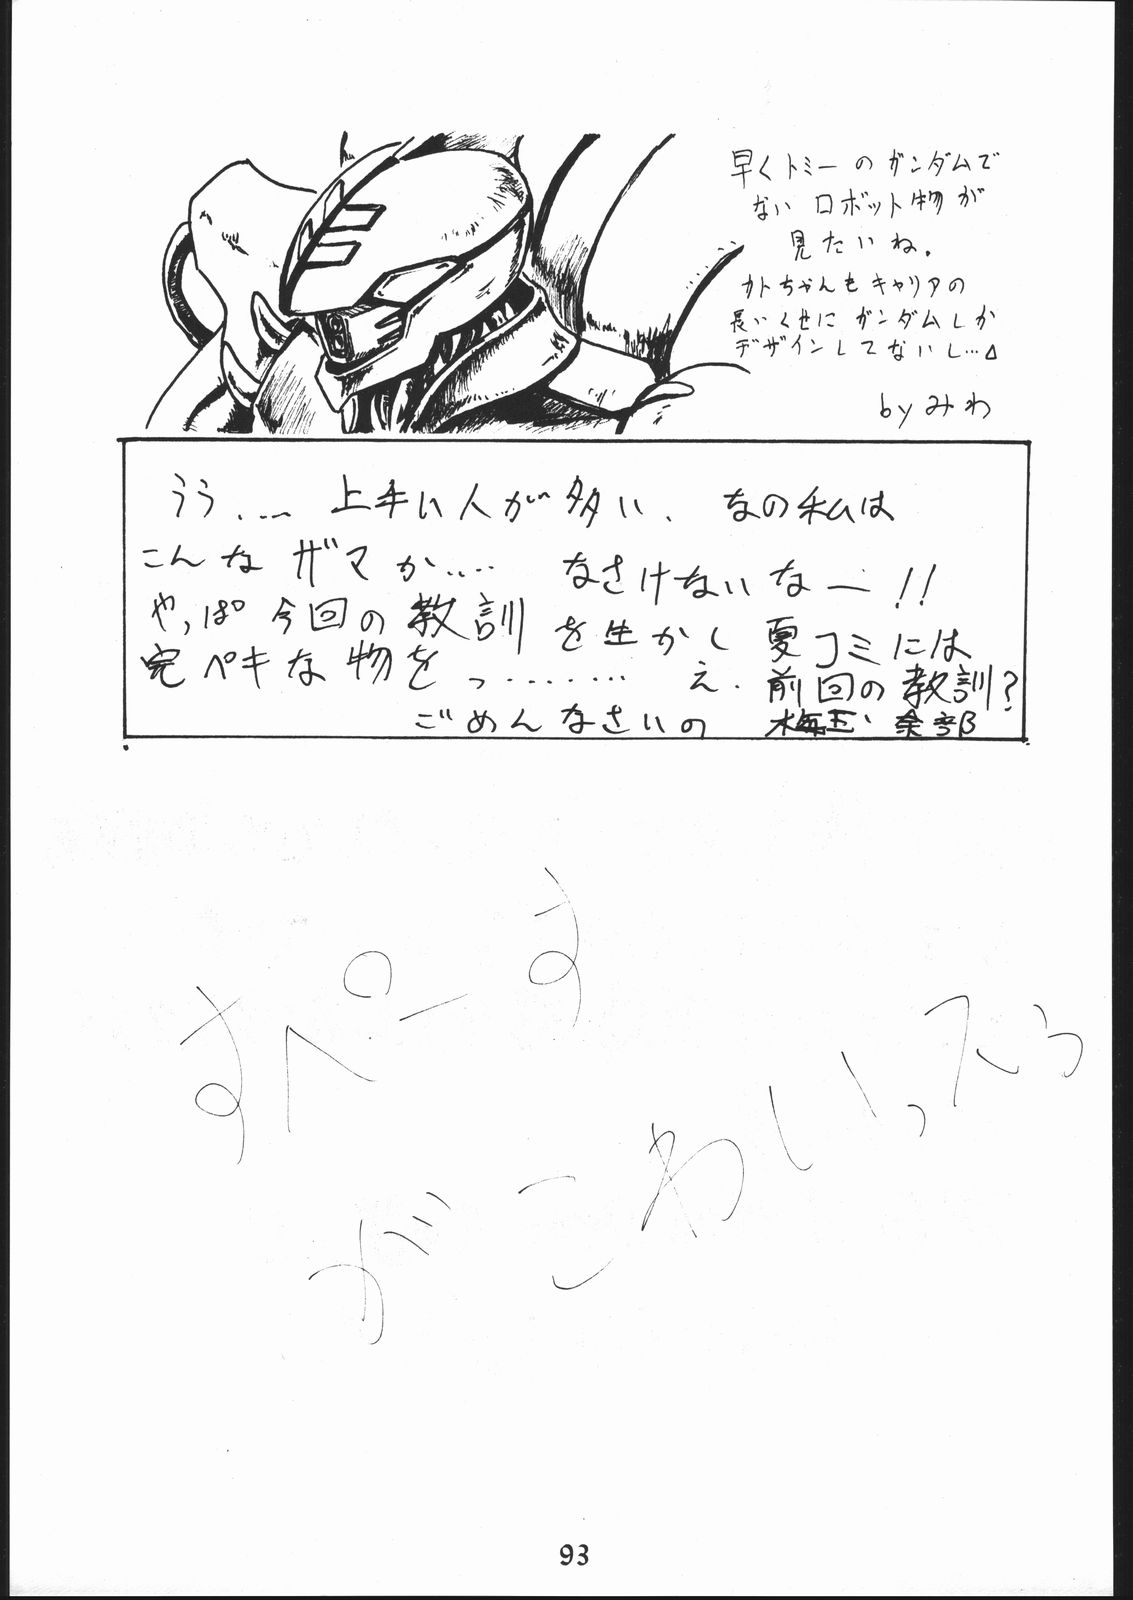 早くトミーのガンダムで
ない ロボット物が
見たいね。
カトちゃんもキャリアの
長いくせに ガンダムしか
デザインしてないし…
by みわ
うう.... 上手い人が多い、なの私は
こんな ザマか.... なさけないなー!!
やっぱ今回の教訓を生かし 夏コミには
完ペキな物をっ......... え、前回の教訓?
ごめんなさいの 梅玉 奈部
すぺーす
がこわいってう
93